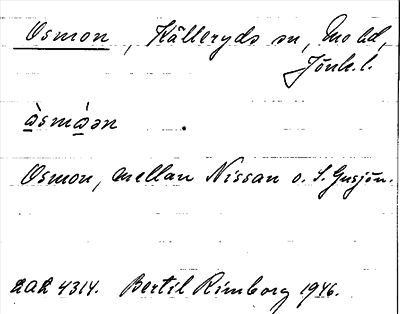 Osmon, Källeryds sn, Mo hd,
Jönk. l.
òsmòən
Osmon, mellan Nissan o. S. Gusjön.
2a2 4314. Bertil Rimborg 1946.